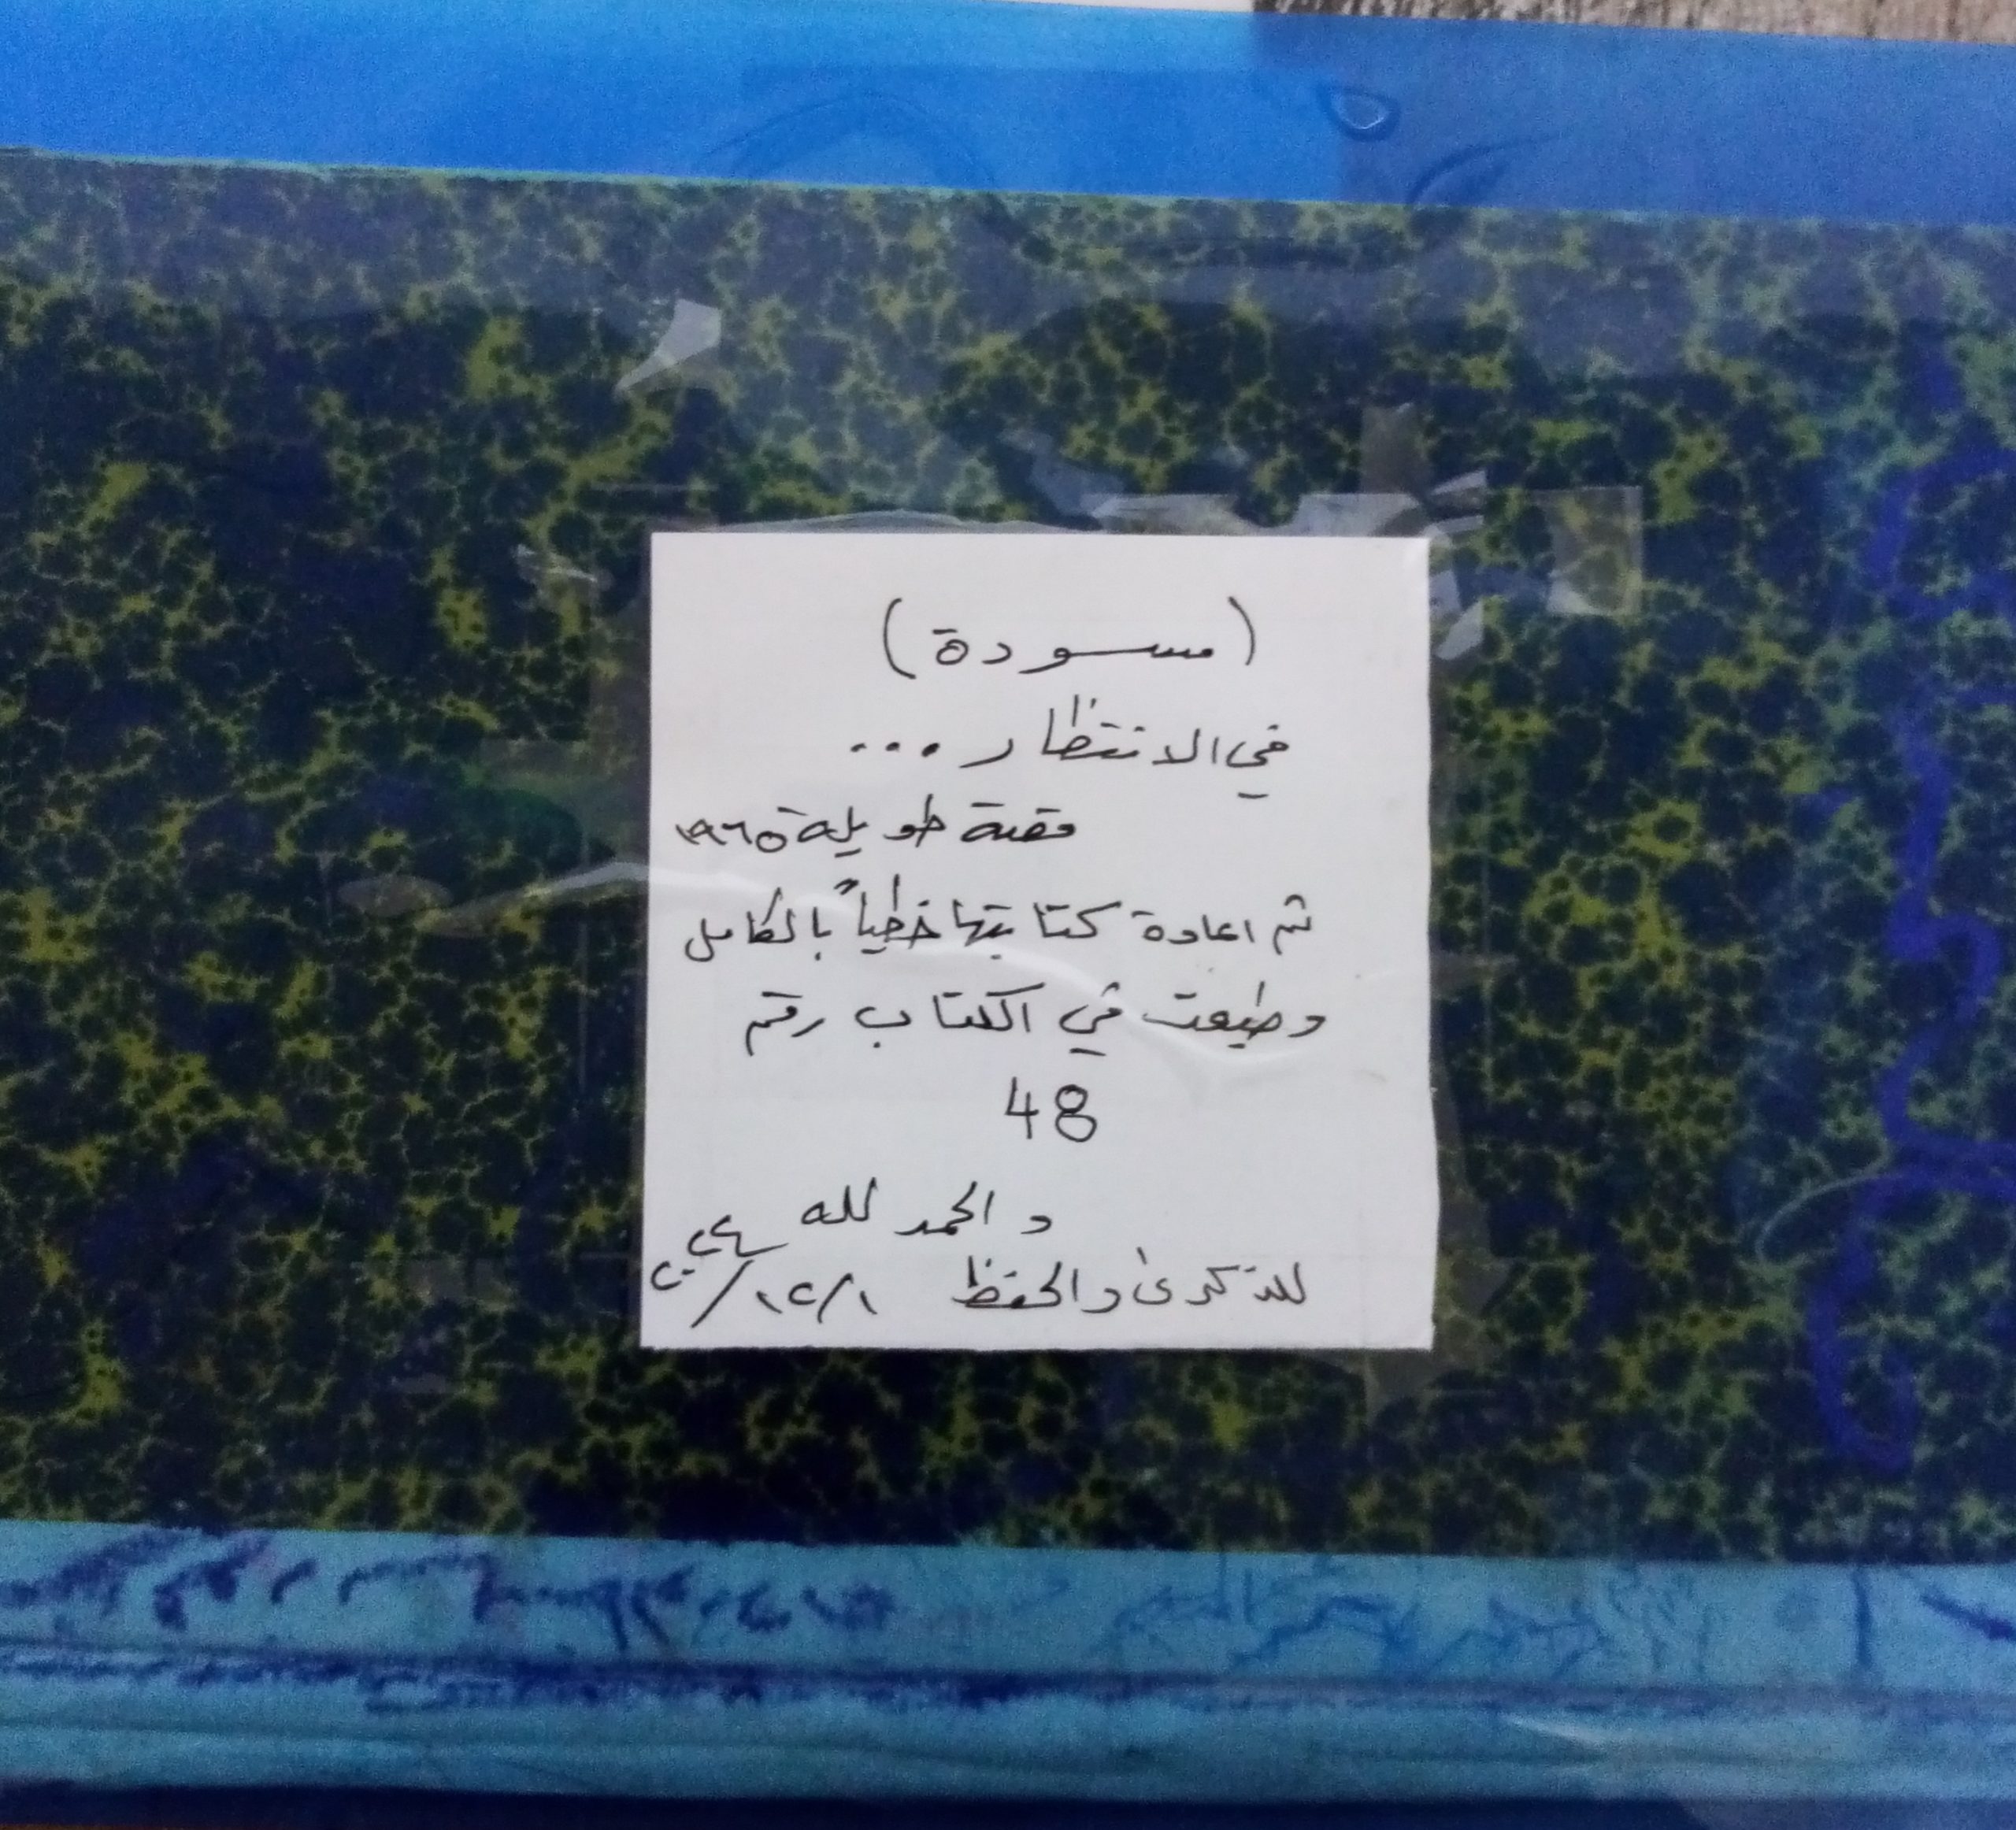 (مسودة)
في الانتظار ...
قصة طويلة ١٩٦٥
تم اعادة كتابتها خطياً بالكامل
وطبعت في الكتاب رقم
48
والحمد لله
للذكرى والحفظ ١/١٢/٢٠٢٤